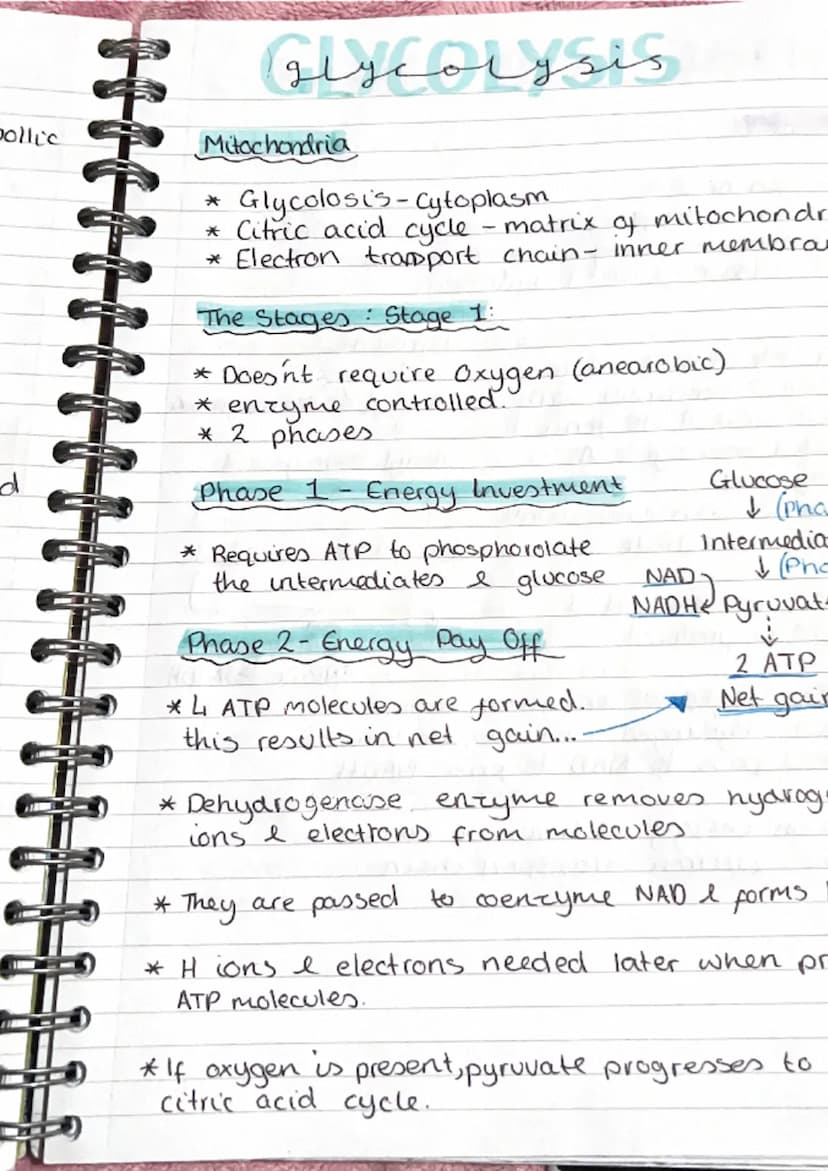 GLYCOLYSIS
glycolysis
ollic
Mitochondria
* Glycolosis - Cytoplasm
* Citric acid cycle - matrix of mitochondr
* Electron transport chain - inner membra
The Stages : Stage 1:
* Does'nt require Oxygen (anearobic)
* enzyme controlled.
* 2 phases
d
Phase 1 - Energy Investment
Glucose
↓ (Pha
* Requires ATP to phosphorolate
Intermedia
↓ (Pho
the intermediates & glucose
NAD
NADH Pyruvat
Phase 2 - Energy Pay Off
2 ATP
* 4 ATP molecules are formed.
Net gain
this results in net gain...
* Dehydrogenase enzyme removes hydrog
ions & electrons from molecules
* They are passed to coenzyme NAD & forms
* H ions & electrons needed later when pr
ATP molecules.
* If oxygen is present, pyruvate progresses to
citric acid cycle.